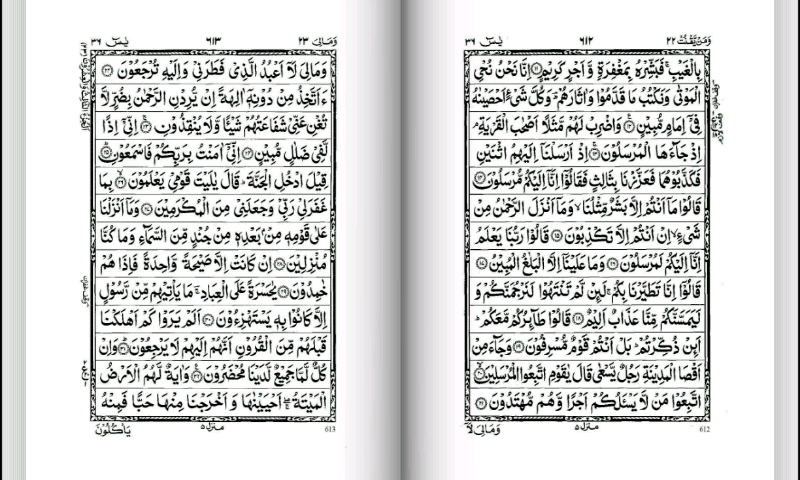 وَمَنْ يَّقْنُتْ ٢٢
٦١٢
يٰسٓ ٣٦
بِالْغَيْبِ ۚ فَبَشِّرْهُ بِمَغْفِرَةٍ وَّ اَجْرٍ كَرِيْمٍ ۝۱۱ اِنَّا نَحْنُ نُحْیِ
الْمَوْتٰى وَنَكْتُبُ مَا قَدَّمُوْا وَاٰثَارَهُمْ ؕ وَكُلَّ شَیْءٍ اَحْصَيْنٰهُ
فِیْۤ اِمَامٍ مُّبِيْنٍ ۝۱۲ وَاضْرِبْ لَهُمْ مَّثَلًا اَصْحٰبَ الْقَرْيَةِ ۘ
اِذْ جَآءَهَا الْمُرْسَلُوْنَ ۝۱۳ اِذْ اَرْسَلْنَاۤ اِلَيْهِمُ اثْنَيْنِ
فَكَذَّبُوْهُمَا فَعَزَّزْنَا بِثَالِثٍ فَقَالُوْۤا اِنَّاۤ اِلَيْكُمْ مُّرْسَلُوْنَ ۝۱۴
قَالُوْا مَاۤ اَنْتُمْ اِلَّا بَشَرٌ مِّثْلُنَا ۙ وَمَاۤ اَنْزَلَ الرَّحْمٰنُ مِنْ
شَیْءٍ ۙ اِنْ اَنْتُمْ اِلَّا تَكْذِبُوْنَ ۝۱۵ قَالُوْا رَبُّنَا يَعْلَمُ
اِنَّاۤ اِلَيْكُمْ لَمُرْسَلُوْنَ ۝۱۶ وَمَا عَلَيْنَاۤ اِلَّا الْبَلٰغُ الْمُبِيْنُ ۝۱۷
قَالُوْۤا اِنَّا تَطَيَّرْنَا بِكُمْ ۚ لَئِنْ لَّمْ تَنْتَهُوْا لَنَرْجُمَنَّكُمْ وَ
لَيَمَسَّنَّكُمْ مِّنَّا عَذَابٌ اَلِيْمٌ ۝۱۸ قَالُوْا طَآئِرُكُمْ مَّعَكُمْ ؕ
اَئِنْ ذُكِّرْتُمْ ؕ بَلْ اَنْتُمْ قَوْمٌ مُّسْرِفُوْنَ ۝۱۹ وَجَآءَ مِنْ
اَقْصَا الْمَدِيْنَةِ رَجُلٌ يَّسْعٰى قَالَ يٰقَوْمِ اتَّبِعُوا الْمُرْسَلِيْنَ ۝۲۰
اتَّبِعُوْا مَنْ لَّا يَسْئَلُكُمْ اَجْرًا وَّهُمْ مُّهْتَدُوْنَ ۝۲۱
وَمَالِیَ لَاۤ
منزل ٥
612
وَمَالِیَ ٢٣
٦١٣
يٰسٓ ٣٦
وَمَالِیَ لَاۤ اَعْبُدُ الَّذِیْ فَطَرَنِیْ وَاِلَيْهِ تُرْجَعُوْنَ ۝۲۲
ءَاَتَّخِذُ مِنْ دُوْنِهٖۤ اٰلِهَةً اِنْ يُّرِدْنِ الرَّحْمٰنُ بِضُرٍّ لَّا
تُغْنِ عَنِّیْ شَفَاعَتُهُمْ شَيْئًا وَّلَا يُنْقِذُوْنِ ۝۲۳ اِنِّیْۤ اِذًا
لَّفِیْ ضَلٰلٍ مُّبِيْنٍ ۝۲۴ اِنِّیْۤ اٰمَنْتُ بِرَبِّكُمْ فَاسْمَعُوْنِ ۝۲۵
قِيْلَ ادْخُلِ الْجَنَّةَ ؕ قَالَ يٰلَيْتَ قَوْمِیْ يَعْلَمُوْنَ ۝۲۶ بِمَا
غَفَرَ لِیْ رَبِّیْ وَجَعَلَنِیْ مِنَ الْمُكْرَمِيْنَ ۝۲۷ وَمَاۤ اَنْزَلْنَا
عَلٰى قَوْمِهٖ مِنْۢ بَعْدِهٖ مِنْ جُنْدٍ مِّنَ السَّمَآءِ وَمَا كُنَّا
مُنْزِلِيْنَ ۝۲۸ اِنْ كَانَتْ اِلَّا صَيْحَةً وَّاحِدَةً فَاِذَا هُمْ
خٰمِدُوْنَ ۝۲۹ يٰحَسْرَةً عَلَى الْعِبَادِ ۚ مَا يَاْتِيْهِمْ مِّنْ رَّسُوْلٍ
اِلَّا كَانُوْا بِهٖ يَسْتَهْزِءُوْنَ ۝۳۰ اَلَمْ يَرَوْا كَمْ اَهْلَكْنَا
قَبْلَهُمْ مِّنَ الْقُرُوْنِ اَنَّهُمْ اِلَيْهِمْ لَا يَرْجِعُوْنَ ۝۳۱ وَاِنْ
كُلٌّ لَّمَّا جَمِيْعٌ لَّدَيْنَا مُحْضَرُوْنَ ۝۳۲ وَاٰيَةٌ لَّهُمُ الْاَرْضُ
الْمَيْتَةُ ۖ اَحْيَيْنٰهَا وَ اَخْرَجْنَا مِنْهَا حَبًّا فَمِنْهُ
يَاْكُلُوْنَ
منزل ٥
613